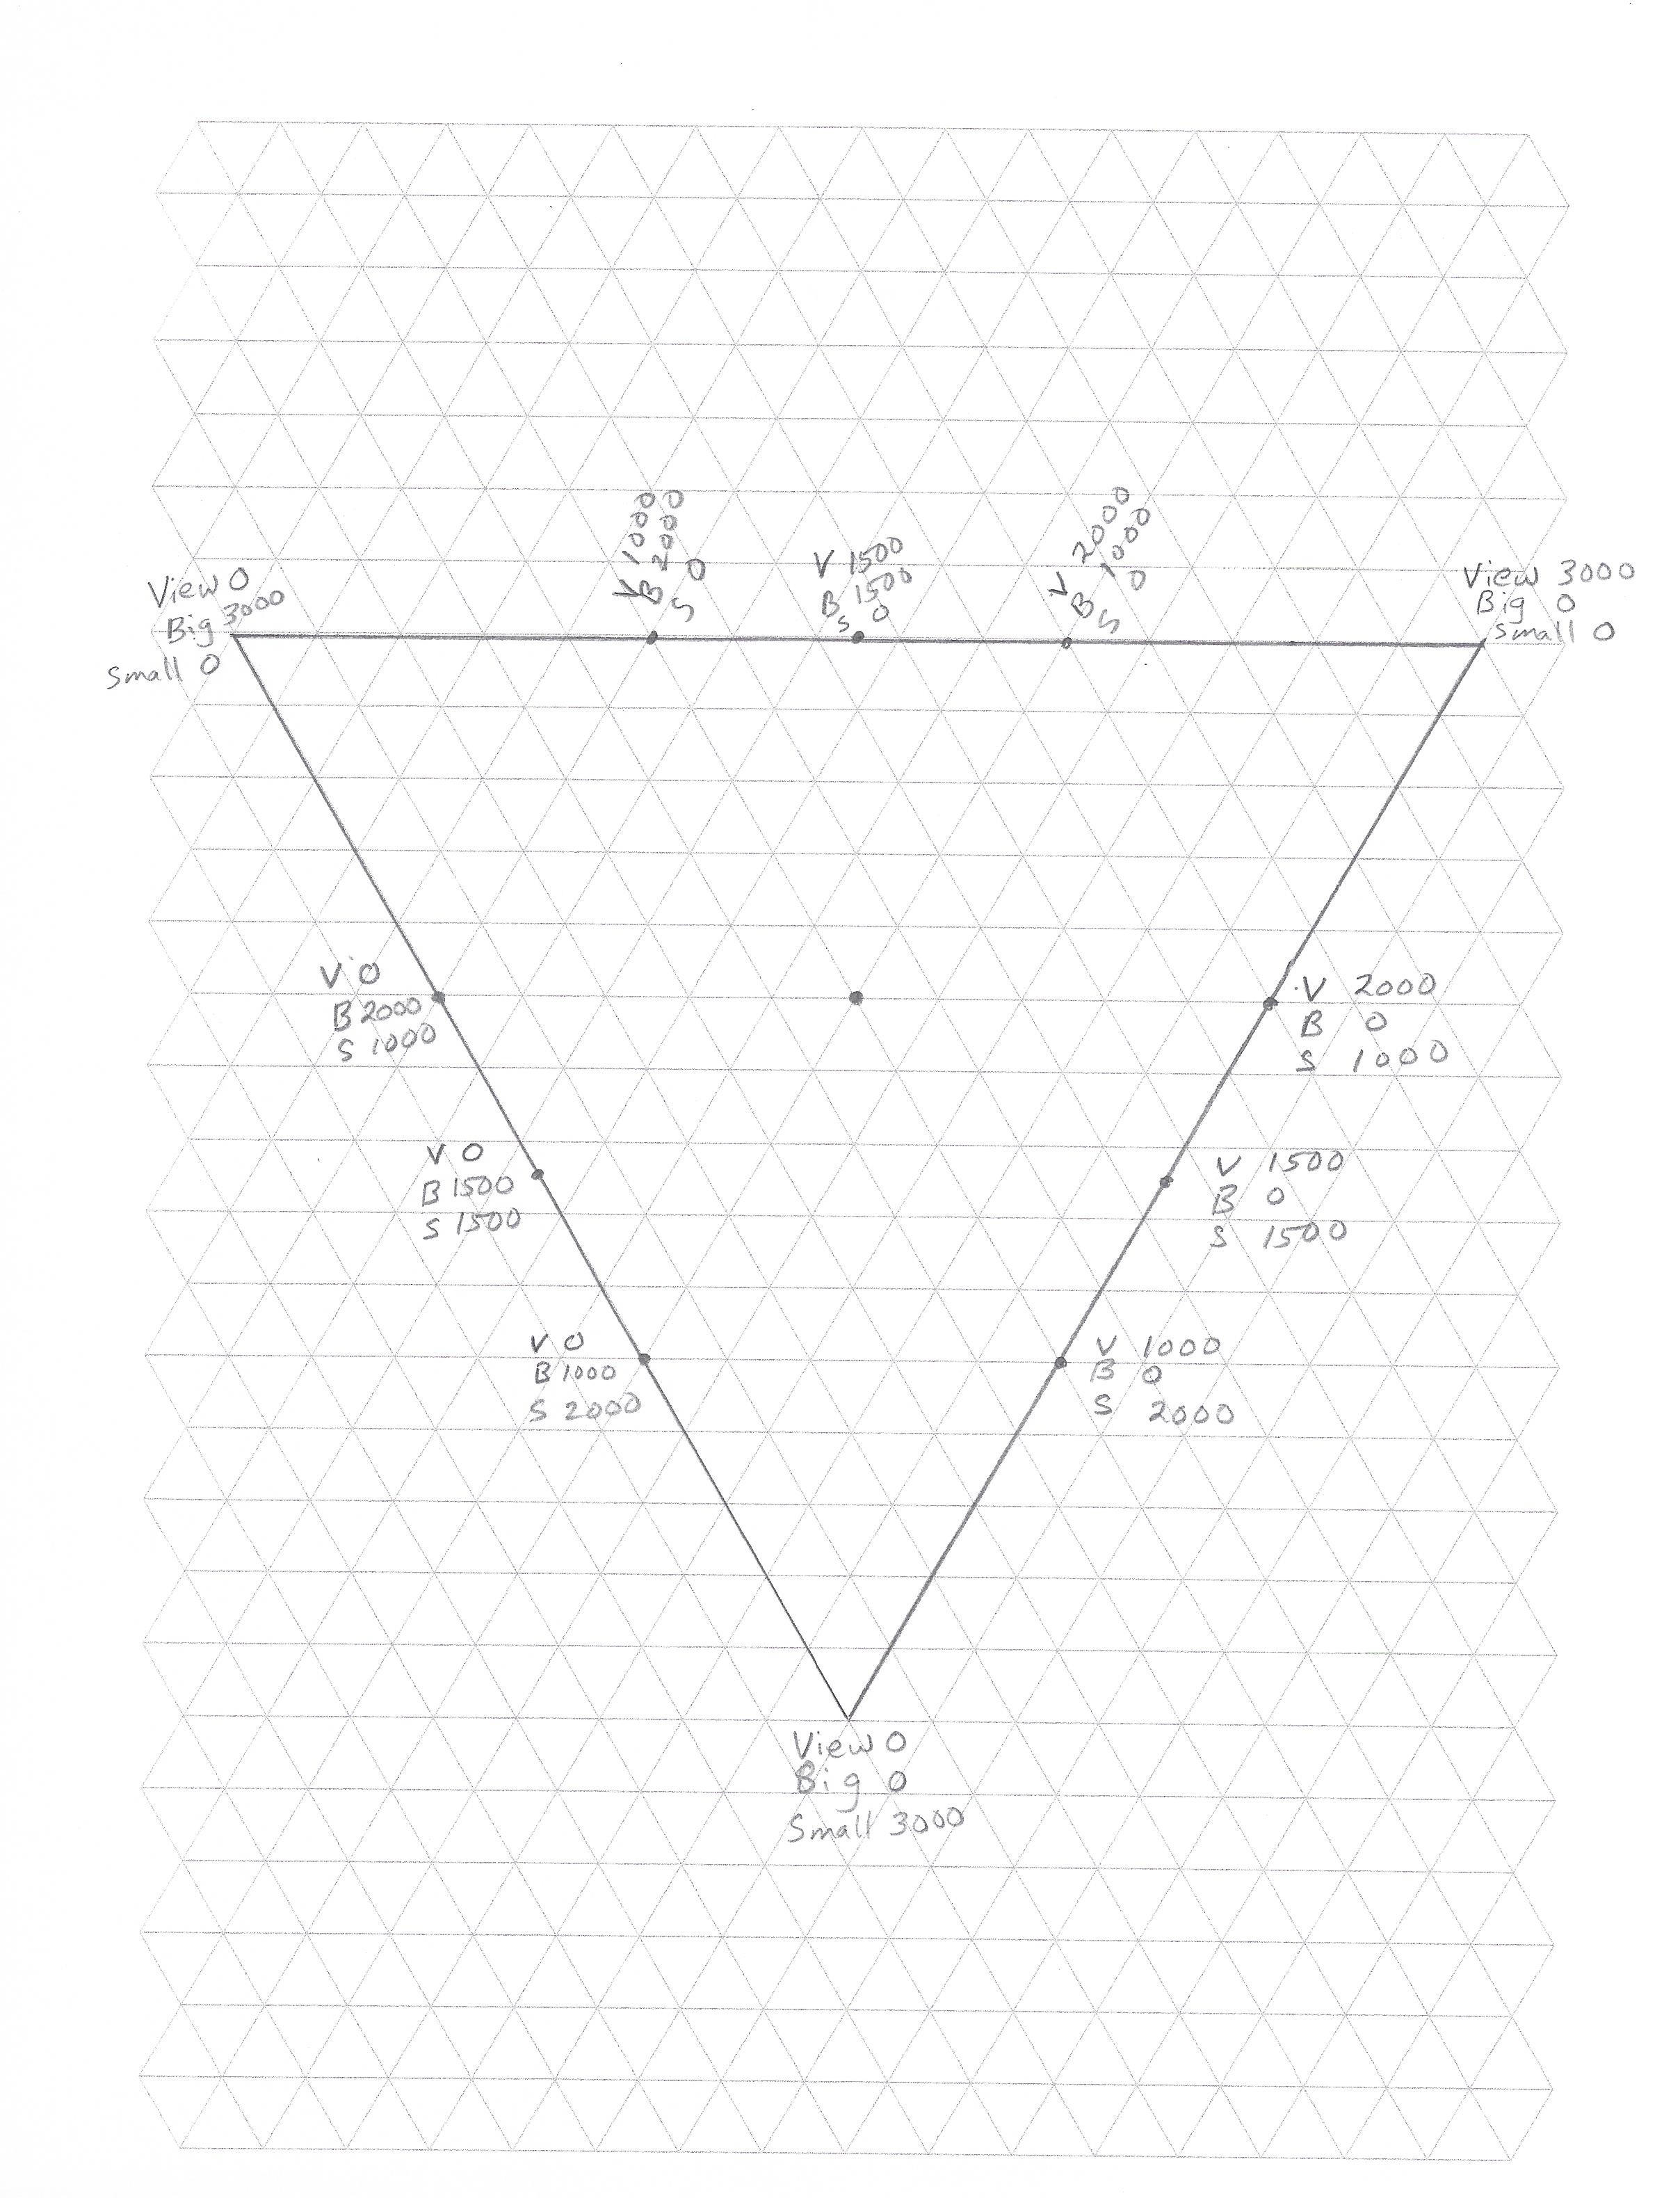 V 1000
B 2000
S 0
V 1500
B 1500
S 0
V 2000
B 1000
S 0
View 0
Big 3000
Small 0
View 3000
Big 0
Small 0
V 0
B 2000
S 1000
V 2000
B 0
S 1000
V 0
B 1500
S 1500
V 1500
B 0
S 1500
V 0
B 1000
S 2000
V 1000
B 0
S 2000
View 0
Big 0
Small 3000